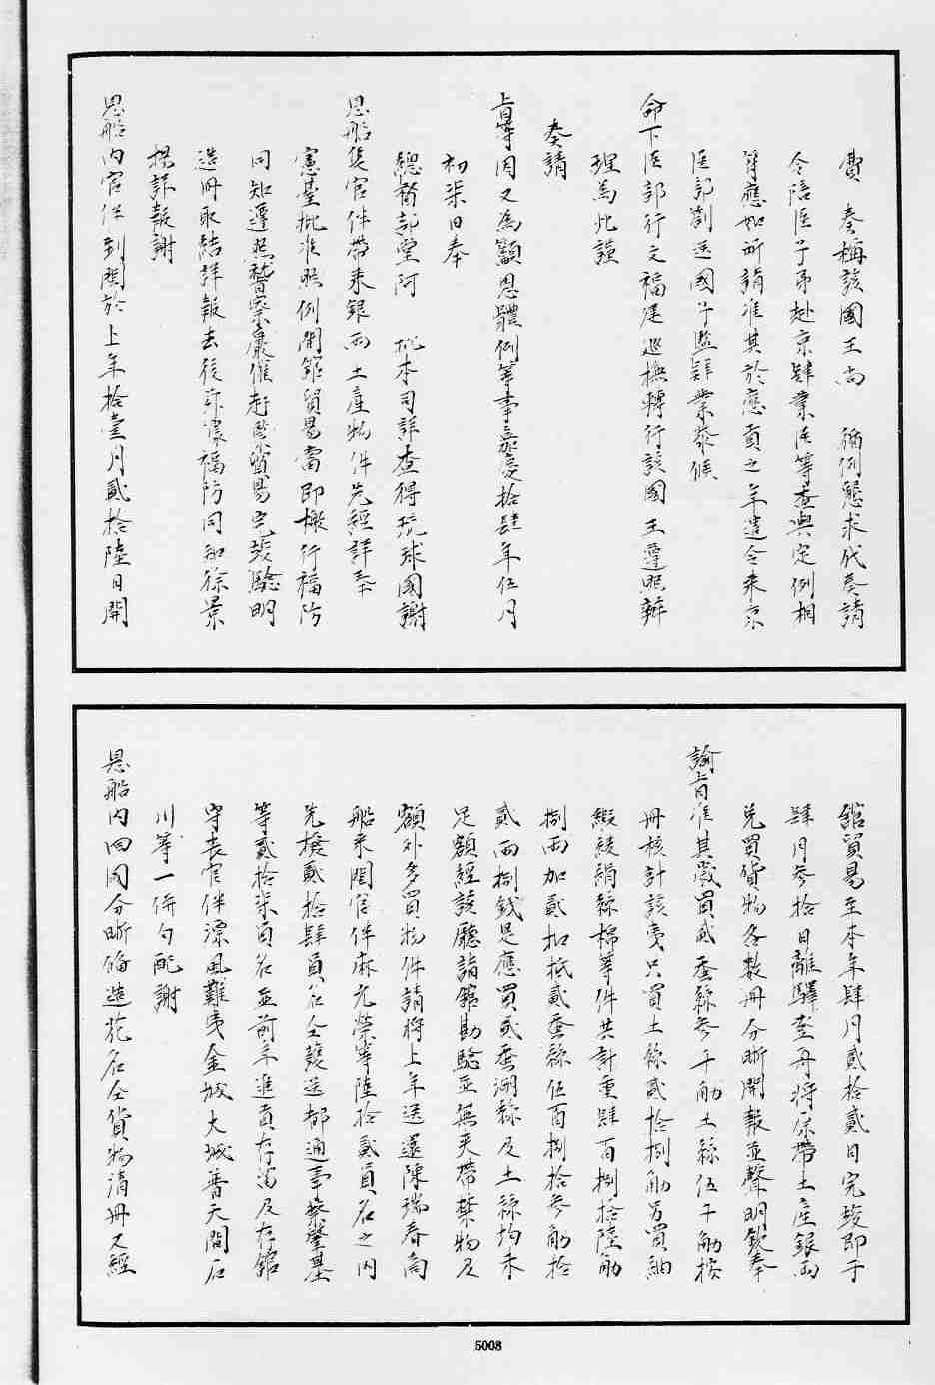 費 奏稱該國王尚 循例懇求代奏請
令陪臣子弟赴京肄業臣等查與定例相
符應如所請准其於應貢之年遣令來京
臣部劄送國子監肄業恭候
命下臣部行文福建巡撫轉行該國王遵照辦
理為此謹
奏請
旨等因又為籲恩體例等事嘉慶拾肆年伍月
初柒日奉
總督部堂阿 批本司詳查得琉球國謝
恩船隻官伴帶來銀兩土產物件先經詳奉
憲臺批准照例開館貿易當即檄行福防
同知遵照督察嚴催赶緊貿易完竣驗明
造冊取結詳報去後茲據福防同知徐景
揚詳報謝
恩船內官伴到閩於上年拾壹月貳拾陸日開
館貿易至本年肆月貳拾貳日完竣即于
肆月叁拾日離驛登舟將原帶土產銀兩
兌買貨物各數冊分晰開報並聲明欽奉
諭旨准其歲買貳蚕絲叁千觔土絲伍千觔按
冊核計該夷只買土絲貳拾捌觔另買紬
緞綾絹絲棉等件共計重肆百捌拾陸觔
捌兩加貳扣抵貳蚕絲伍百捌拾叁觔拾
貳兩捌錢是應買貳蚕湖絲及土絲均未
足額經該廳詣館勘驗並無夾帶禁物及
額外多買物件請將上年送還陳瑞春商
船來閩官伴麻允榮等陸拾貳員名之內
先撥貳拾肆員名仝護送都通事蔡肇基
等貳拾柒員名並前年進貢存留及存館
守表官伴漂風難夷金城大城普天間石
川等一併勻配謝
恩船內回國分晰備造花名仝貨物清冊又經
5008